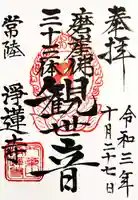 奉拝
令和二年
十月二十七日
磨崖佛
三十三体
観世音
常陸
浄蓮寺